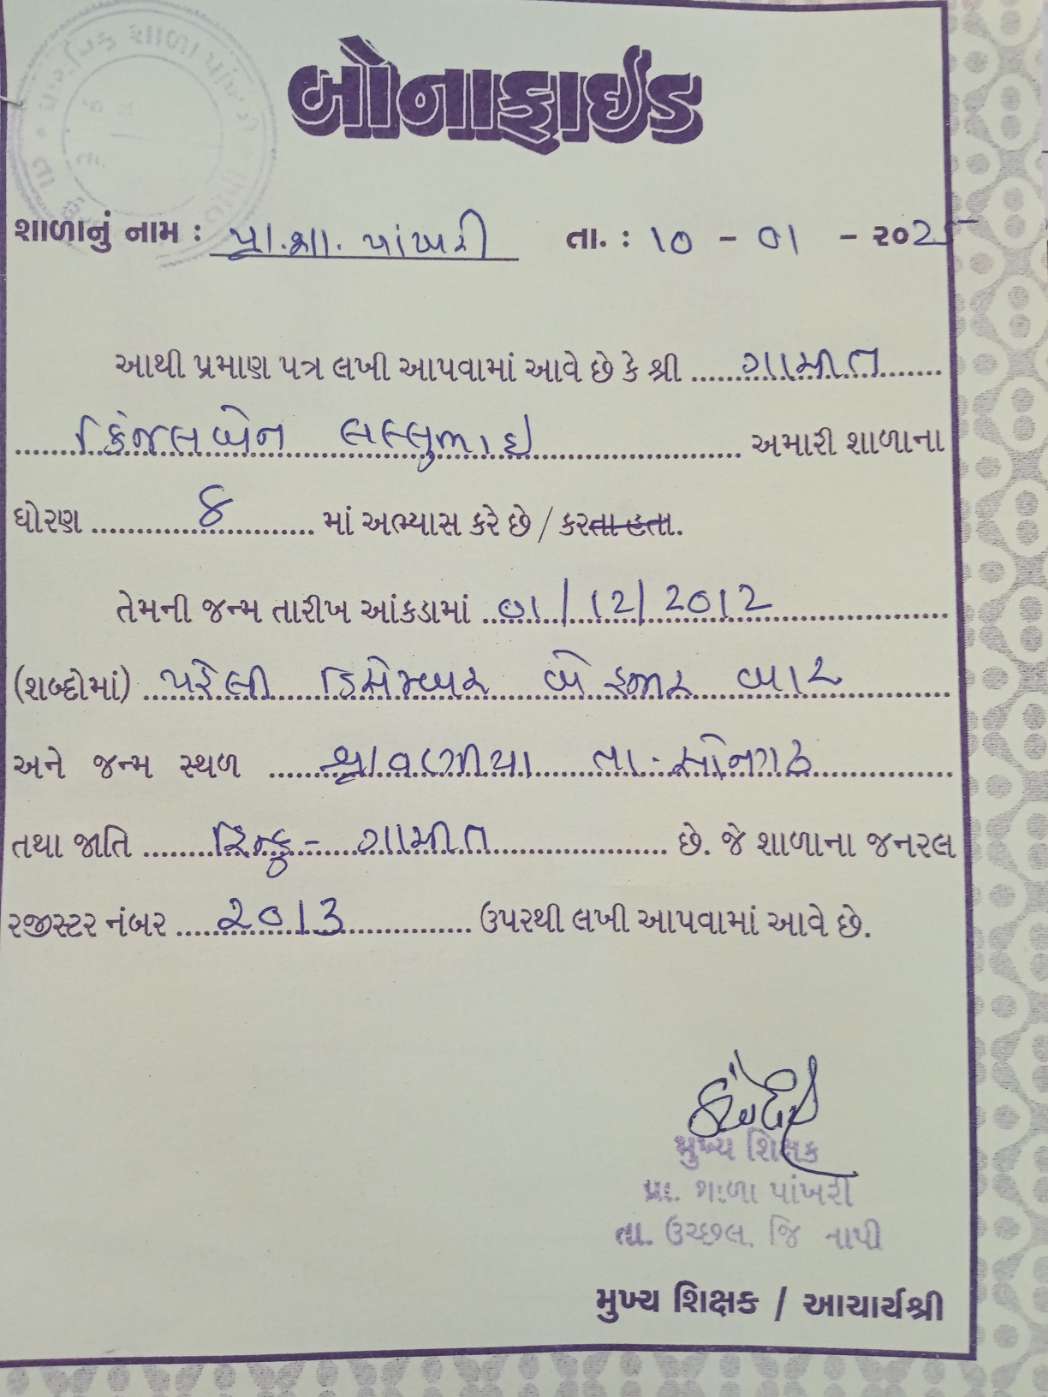 બોનાફાઈડ
શાળાનું નામ : પ્રા.શા. પાંખરી તા. : ૧૦ - ૦૧ - ૨૦25
આથી પ્રમાણ પત્ર લખી આપવામાં આવે છે કે શ્રી ગામીત
કિંજલબેન લલ્લુભાઇ અમારી શાળાના
ધોરણ ૪ માં અભ્યાસ કરે છે / કરતા હતા.
તેમની જન્મ તારીખ આંકડામાં ૦૧/12/2012
(શબ્દોમાં) પહેલી ડિસેમ્બર બે હજાર બાર
અને જન્મ સ્થળ શ્રાવણીયા તા. સોનગઢ
તથા જાતિ હિન્દુ - ગામીત છે. જે શાળાના જનરલ
રજીસ્ટર નંબર ૨૦૧૩ ઉપરથી લખી આપવામાં આવે છે.
મુખ્ય શિક્ષક
પ્રા. શાળા પાંખરી
તા. ઉચ્છલ. જિ તાપી
મુખ્ય શિક્ષક / આચાર્યશ્રી